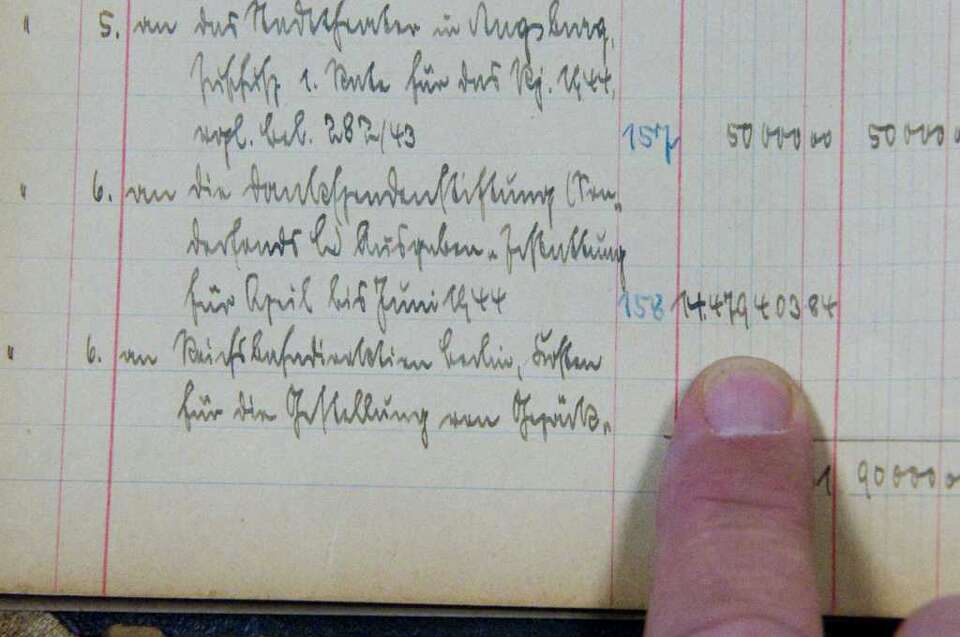 " 5. an das Stadttheater in Augsburg,
Zuschuß 1. Rate für das Rj. 1944,
vgl. Bel. 282/43 157 50 000 00 50 000 0
" 6. an die Dankspendenstiftung (Son„
derfonds L) Ausgaben„Erstattung
für April bis Juni 1944 158 14.479 403 84
" 6. an Reichsbahndirektion Berlin, Kosten
für die Gestellung von Gepäck„
1 90000